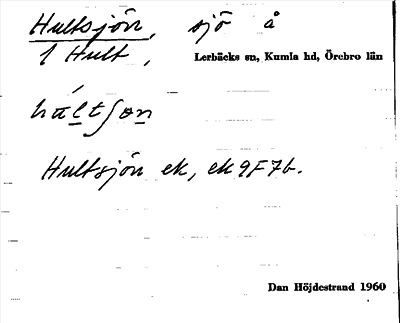 Hultsjön, sjö å
1 Hult, Lerbäcks sn, Kumla hd, Örebro län
Hultsjön ek, ek 9F7b.
Dan Höjdestrand 1960